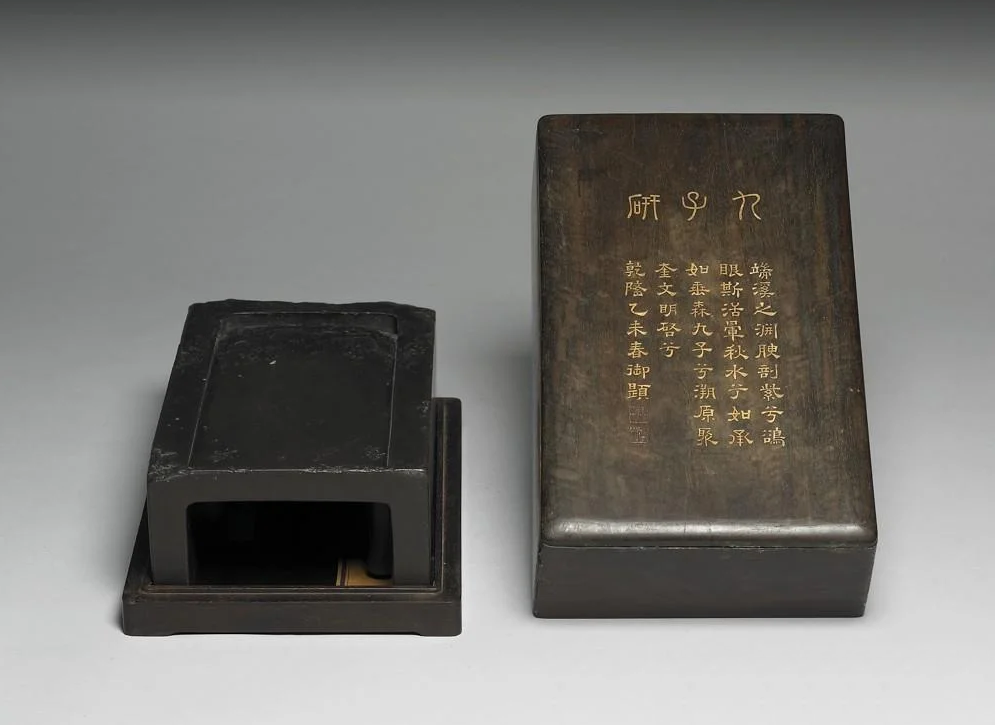 九子研
端溪之淵腴剖紫兮鴝
眼斯活暈秋水兮如承
如垂森九子兮溯原聚
奎文明啓兮
乾隆乙未春御題